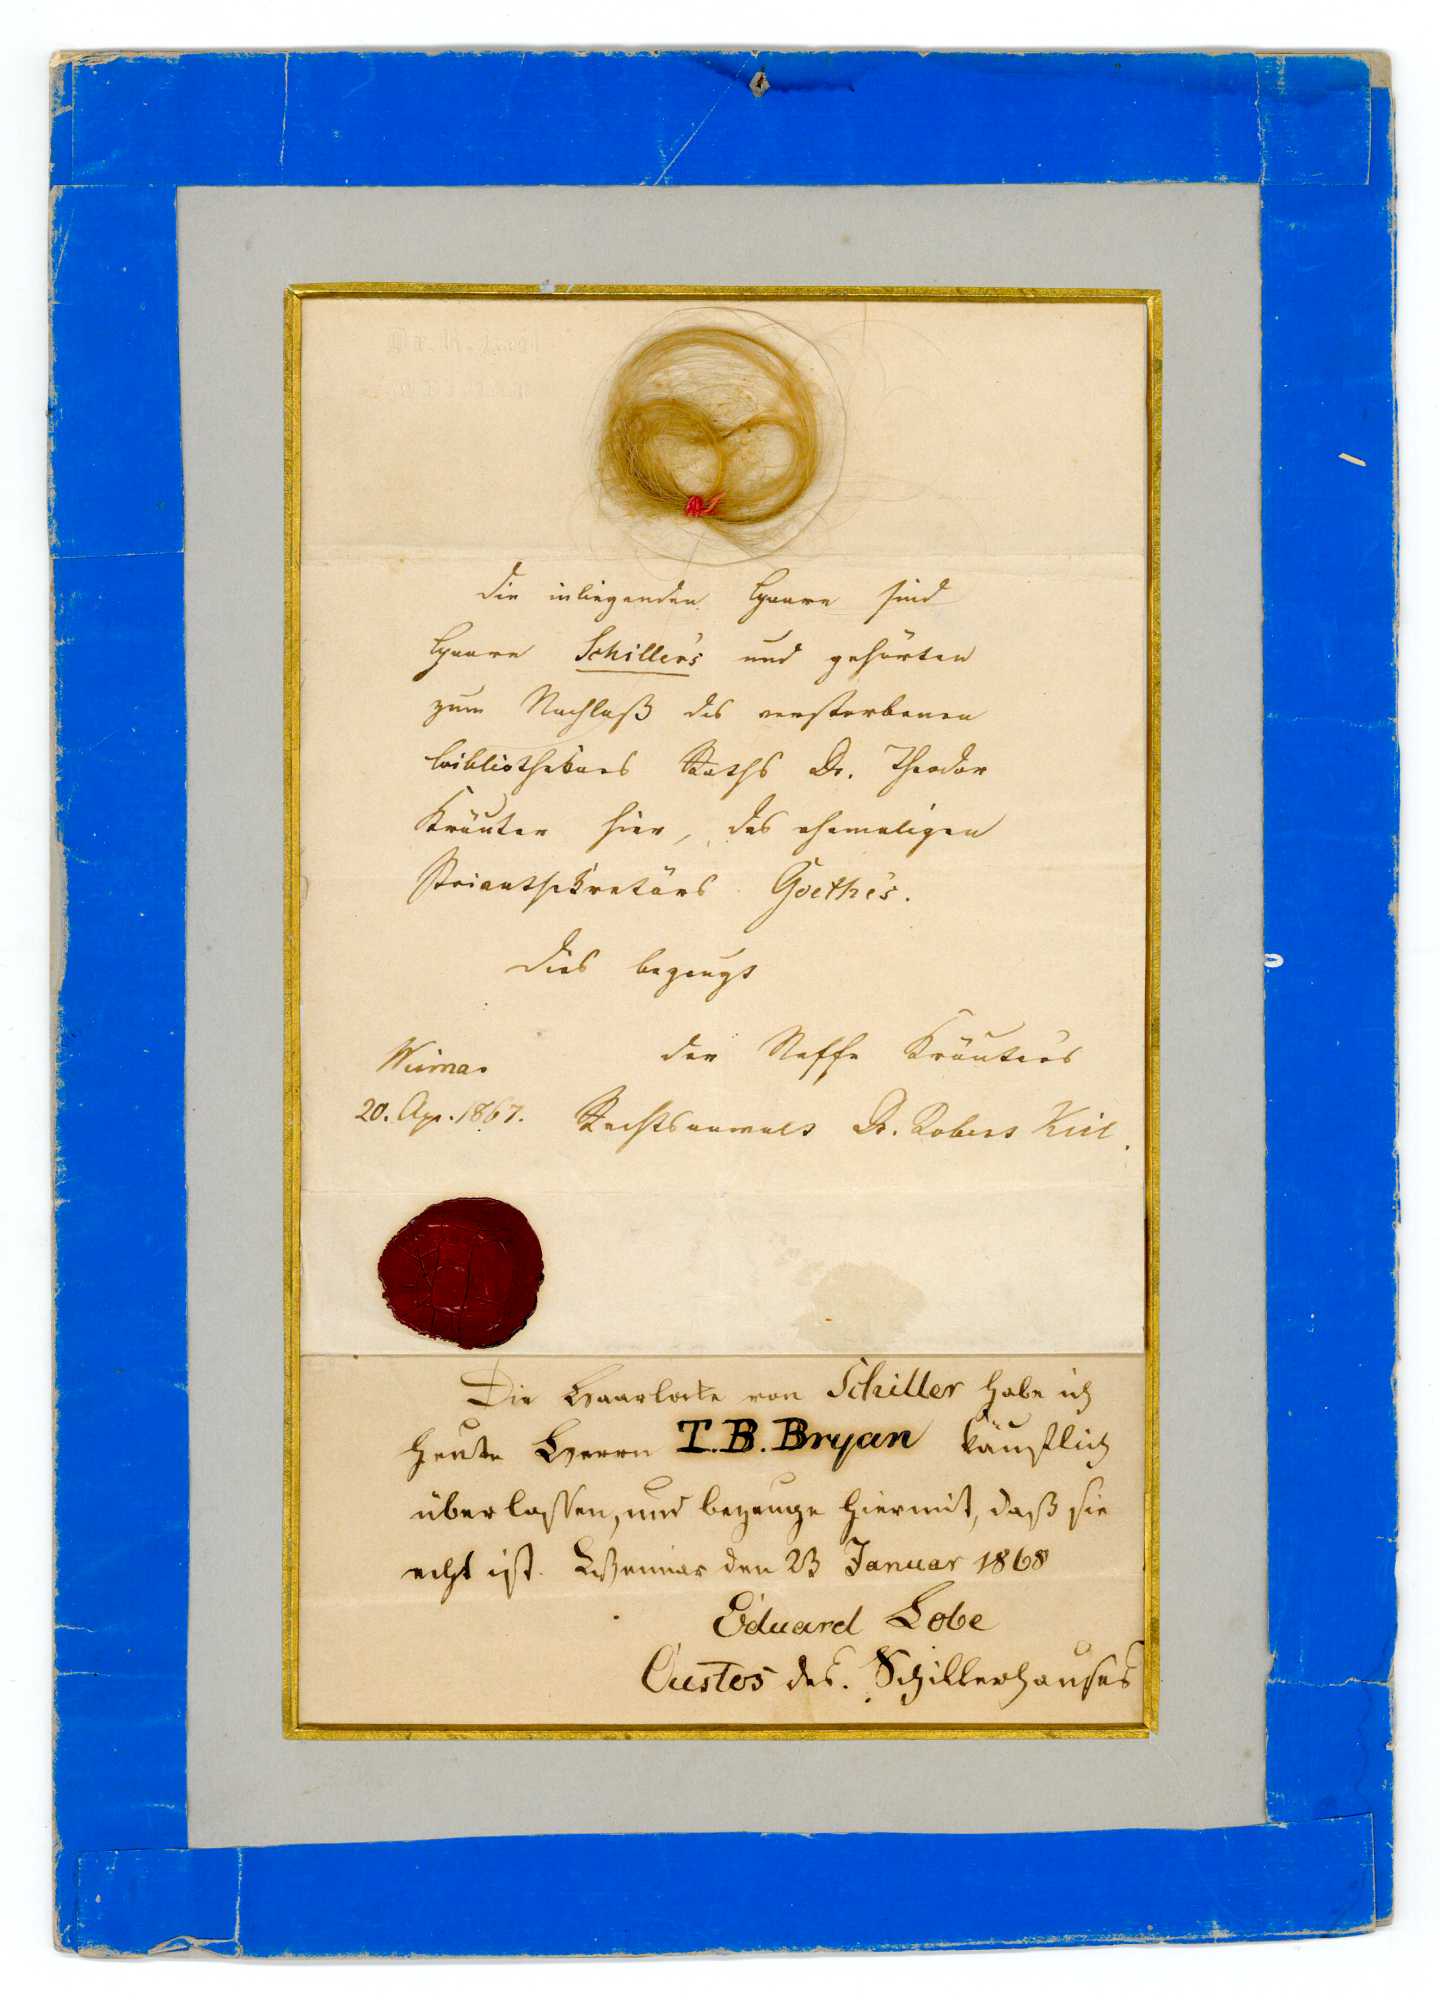 Die inliegenden Haare sind
Haare Schiller's und gehörten
zum Nachlaß des verstorbenen
Bibliothekars Raths Dr. Theodor
Kräuter hier, des ehemaligen
Privatsekretärs Goethe's.
Dies bezeugt
der Neffe Kräuter's
Weimar
20. Apr. 1867. Rechtsanwalt Dr. Robert Keil.
Die Haarlocke von Schiller habe ich
heute Herrn T. B. Bryan käuflich
überlassen, und bezeuge hiermit, daß sie
echt ist. Weimar den 23 Januar 1868
Eduard Lobe
Custos des. Schillerhauses